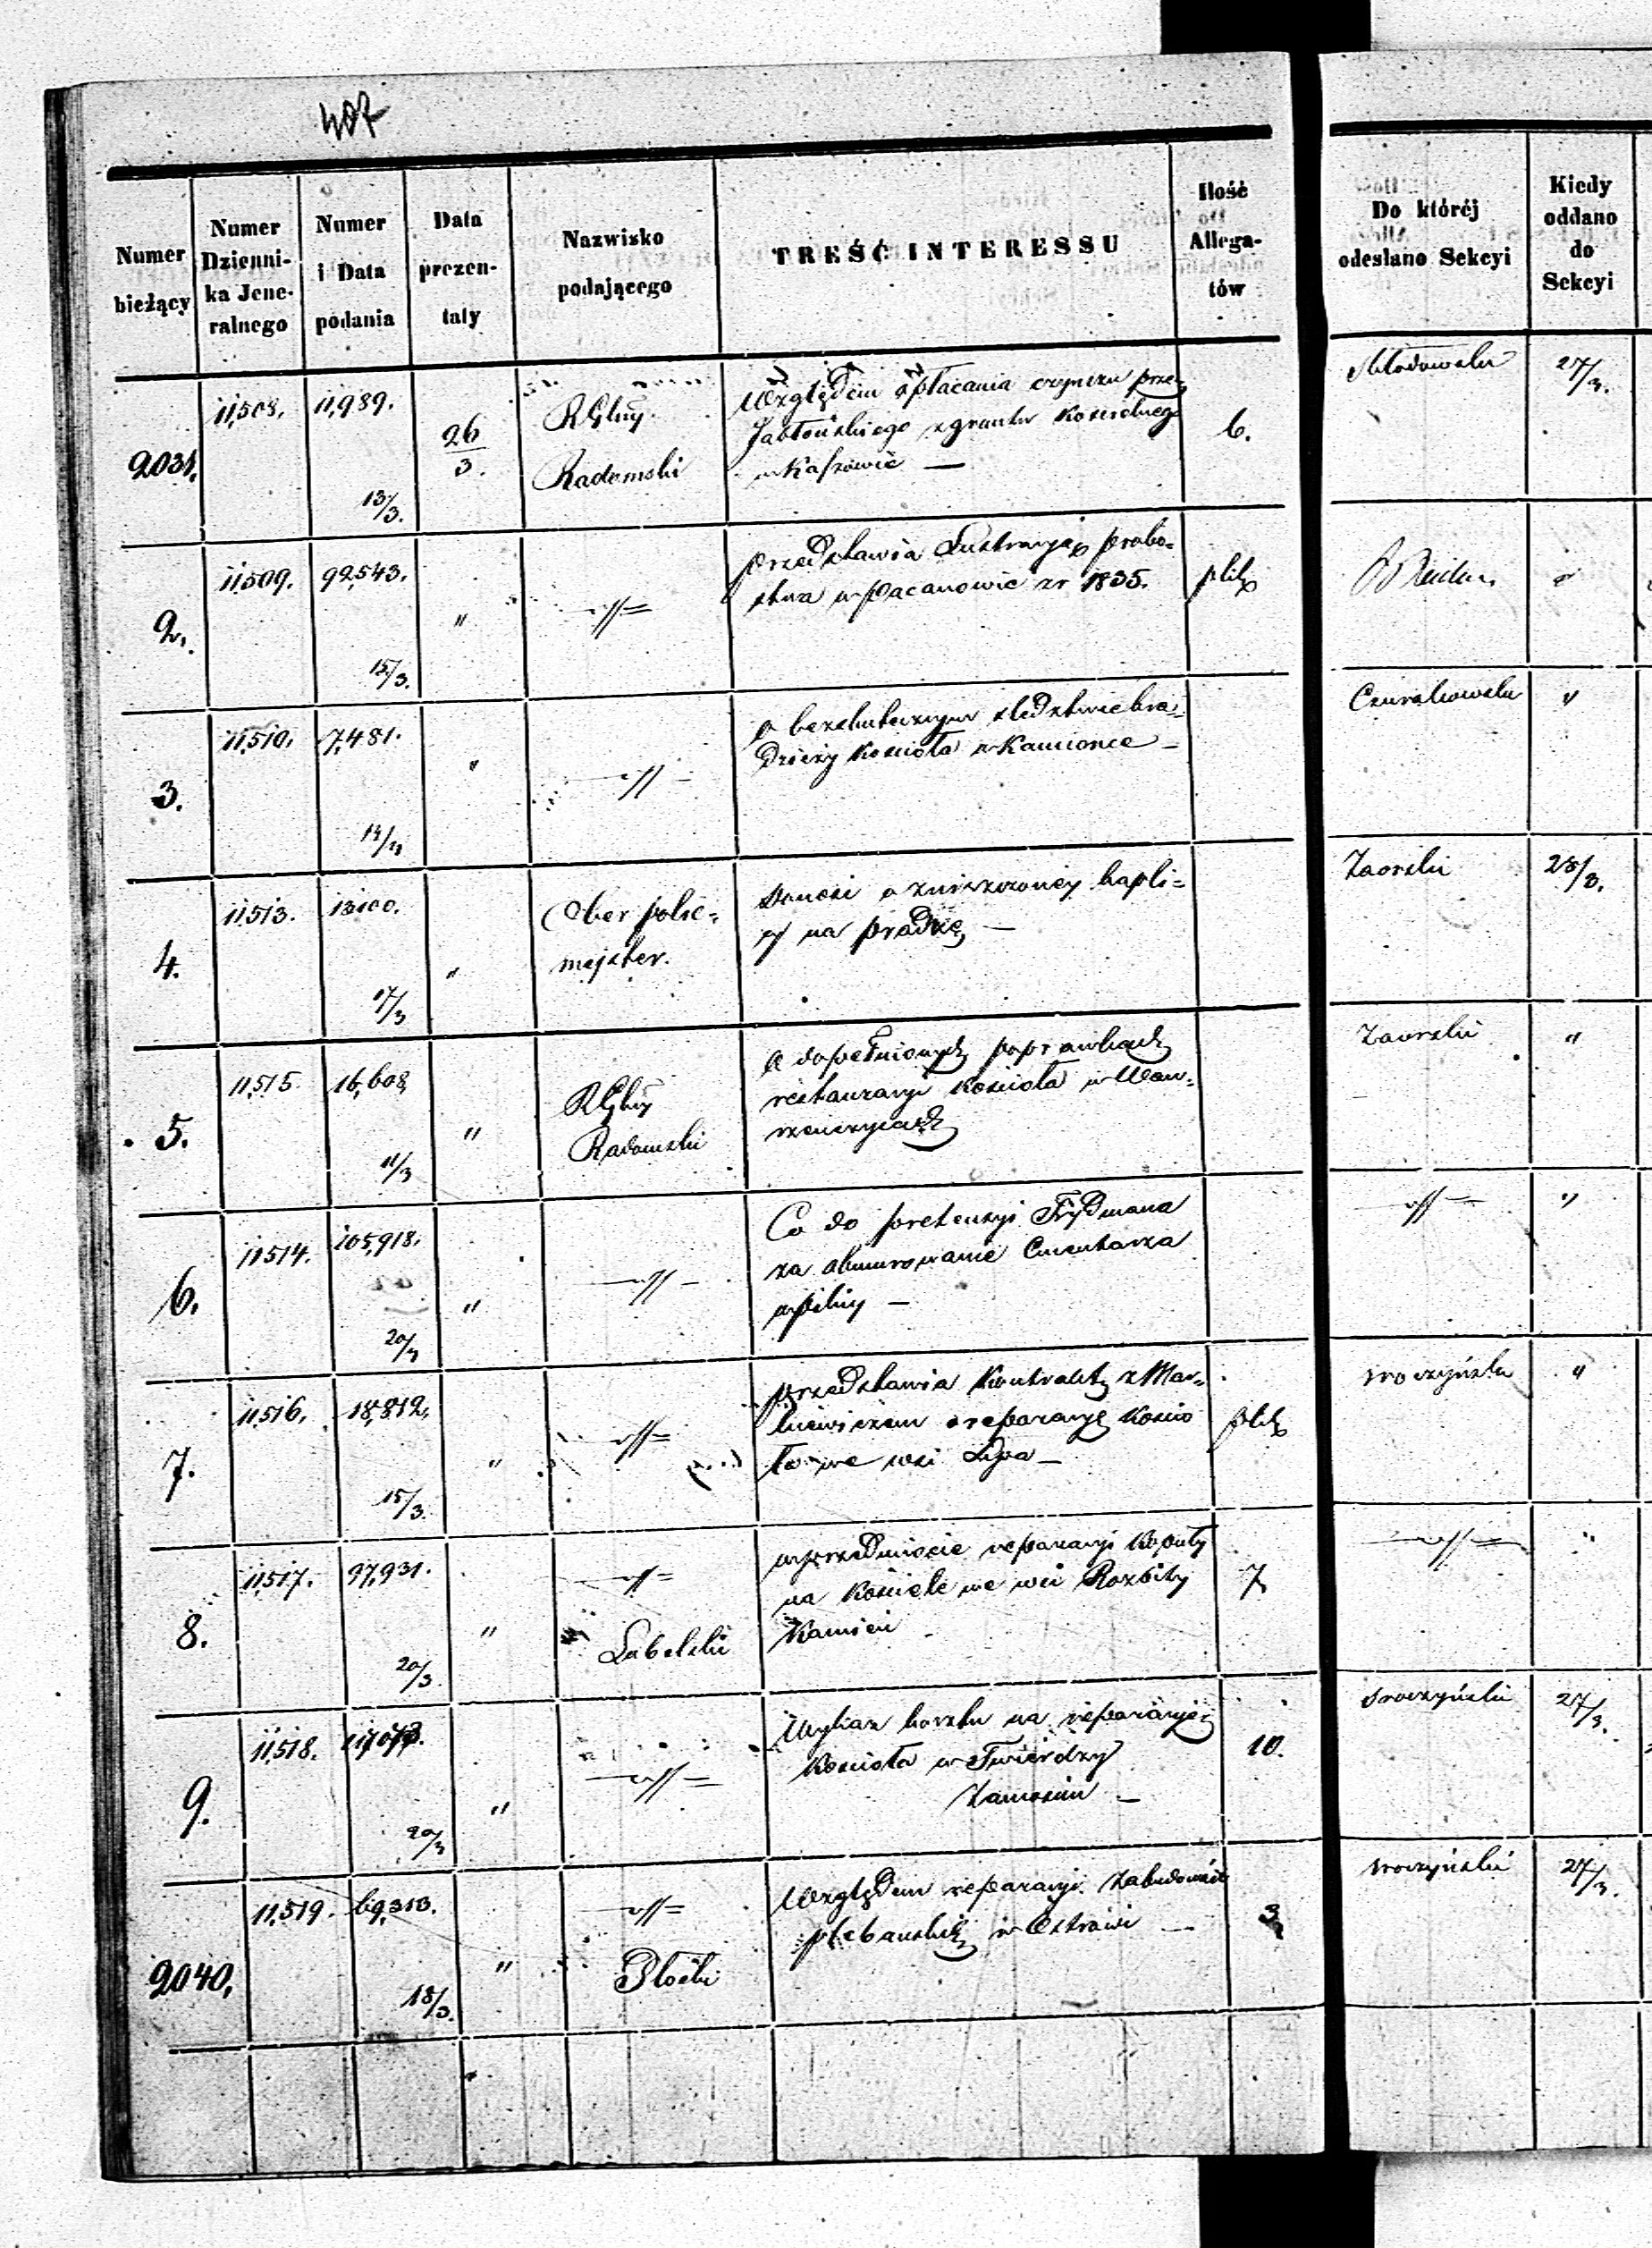 407
Numer bieżący
Numer Dzienni-ka Jene-ralnego
Numer i Data podania
Data prezen-taty
Nazwisko podającego
TREŚĆ INTERESSU
Ilość Allega-tów
Do któréj odesłano Sekcyi
Kiedy oddano do Sekcyi
2031.
11,508.
11,989.
13/3.
26/3.
RGbny
Radomski
Względem opłacania czynszu przez
Jabłońskiego z gruntu Kościelnego
w
6.
27/3.
2.
11,509.
92,543.
15/3.
"
przedstawia Lustracyję probo=
stwa w Pacanowie zr 1835.
plik
3.
11,510.
7,481.
"
o bezskutecznym śledztwie kra=
dzieży Kościoła w Kamionce –
"
4.
11,513.
13100.
17/3
"
Ober polic=
mejster.
donosi o zniszczoney kapli=
cy na pradze –
Zaorski
28/3.
5.
11,515
16,608
11/3
"
RGbny
Radomski
O dopełnionych poprawkach
restauracyi Kościoła w Waw=
rzeńczycach
Zaorski
"
6.
11514.
105,918.
20/3
"
Co do pretensyi Frydmana
za obmurowanie Cmentarza
w Pilicy –
"
7.
11,516.
18,812,
15/3.
"
przedstawia Kontrakt z Mar=
kiewiczem o reparacyę Kościo
ła we wsi Lipa –
plik
Sroczyński
"
8.
11,517.
97,931.
20/3.
"
Lubelski
w przedmiocie reparacyi Kopuły
na Kościele we wsi Rozbity
Kamień
7
"
9.
11,518.
20/3
"
Wykaz kosztu na reparacyję
Kościoła w Twierdzy
Zamościu –
10.
Sroczyński
27/3.
2040.
11,519.
69,313.
18/3.
"
Płocki
Względem reparacyi Zabudowań
plebanskich w Ostrowi –
3
Sroczyński
27/3.